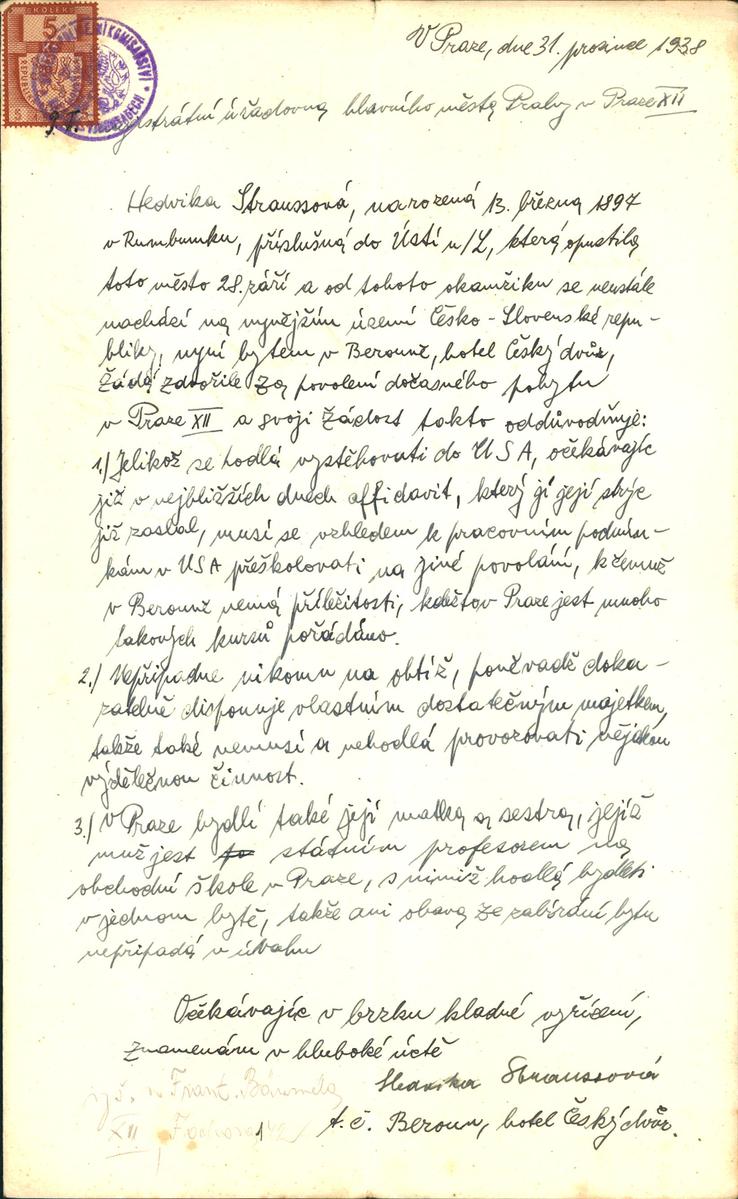 KOLEK
5
V Praze, dne 31. prosince 1938
Magistrátní úřadovna hlavního města Prahy v Praze XII
Hedvika Straussová, narozená 13. března 1897
v Rumburku, příslušná do Ústí n/L, která opustila
toto město 28. září a od tohoto okamžiku se neustále
nachází na nynějším území Česko-Slovenské repu-
bliky, nyní bytem v Berouně, hotel Český dvůr,
žádá zdvořile za povolení dočasného pobytu
v Praze XII a svoji žádost takto odůvodňuje:
1.) Jelikož se hodlá vystěhovati do USA, očekávajíc
již v nejbližších dnech affidavit, který jí její strýc
již zaslal, musí se vzhledem k pracovním podmín-
kám v USA přeškolovati na jiné povolání, k čemuž
v Berouně nemá příležitosti, kdežto v Praze jest mnoho
takových kursů pořádáno.
2.) Nepřipadne nikomu na obtíž, poněvadž doka-
zatelně disponuje vlastním dostatečným majetkem,
takže také nemusí a nehodlá provozovati nějakou
výdělečnou činnost.
3.) V Praze bydlí také její matka a sestra, jejíž
muž jest státním profesorem na
obchodní škole v Praze, s nimiž hodlá bydleti
v jednom bytě, takže ani obava ze zabírání bytu
nepřipadá v úvahu
Očekávajíc v brzku kladné vyřízení,
znamenám v hluboké úctě
Hedvika Straussová
t.č. Beroun, hotel Český dvůr.
Frant.
XII